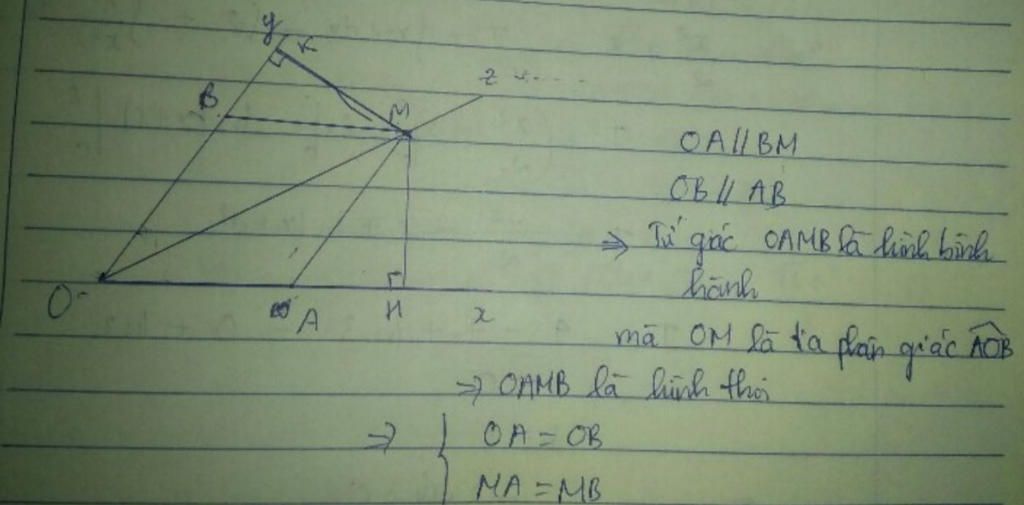 y
K
z
B
M
OA//BM
OB// AB
=> Tứ giác OAMB là hình bình
hành
O
A
H
x
mà OM là tia phân giác AOB
=> OAMB là hình thoi
=> { OA = OB
MA = MB